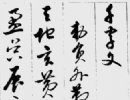 千字文
勅員外散
天地玄黃
盈昃辰